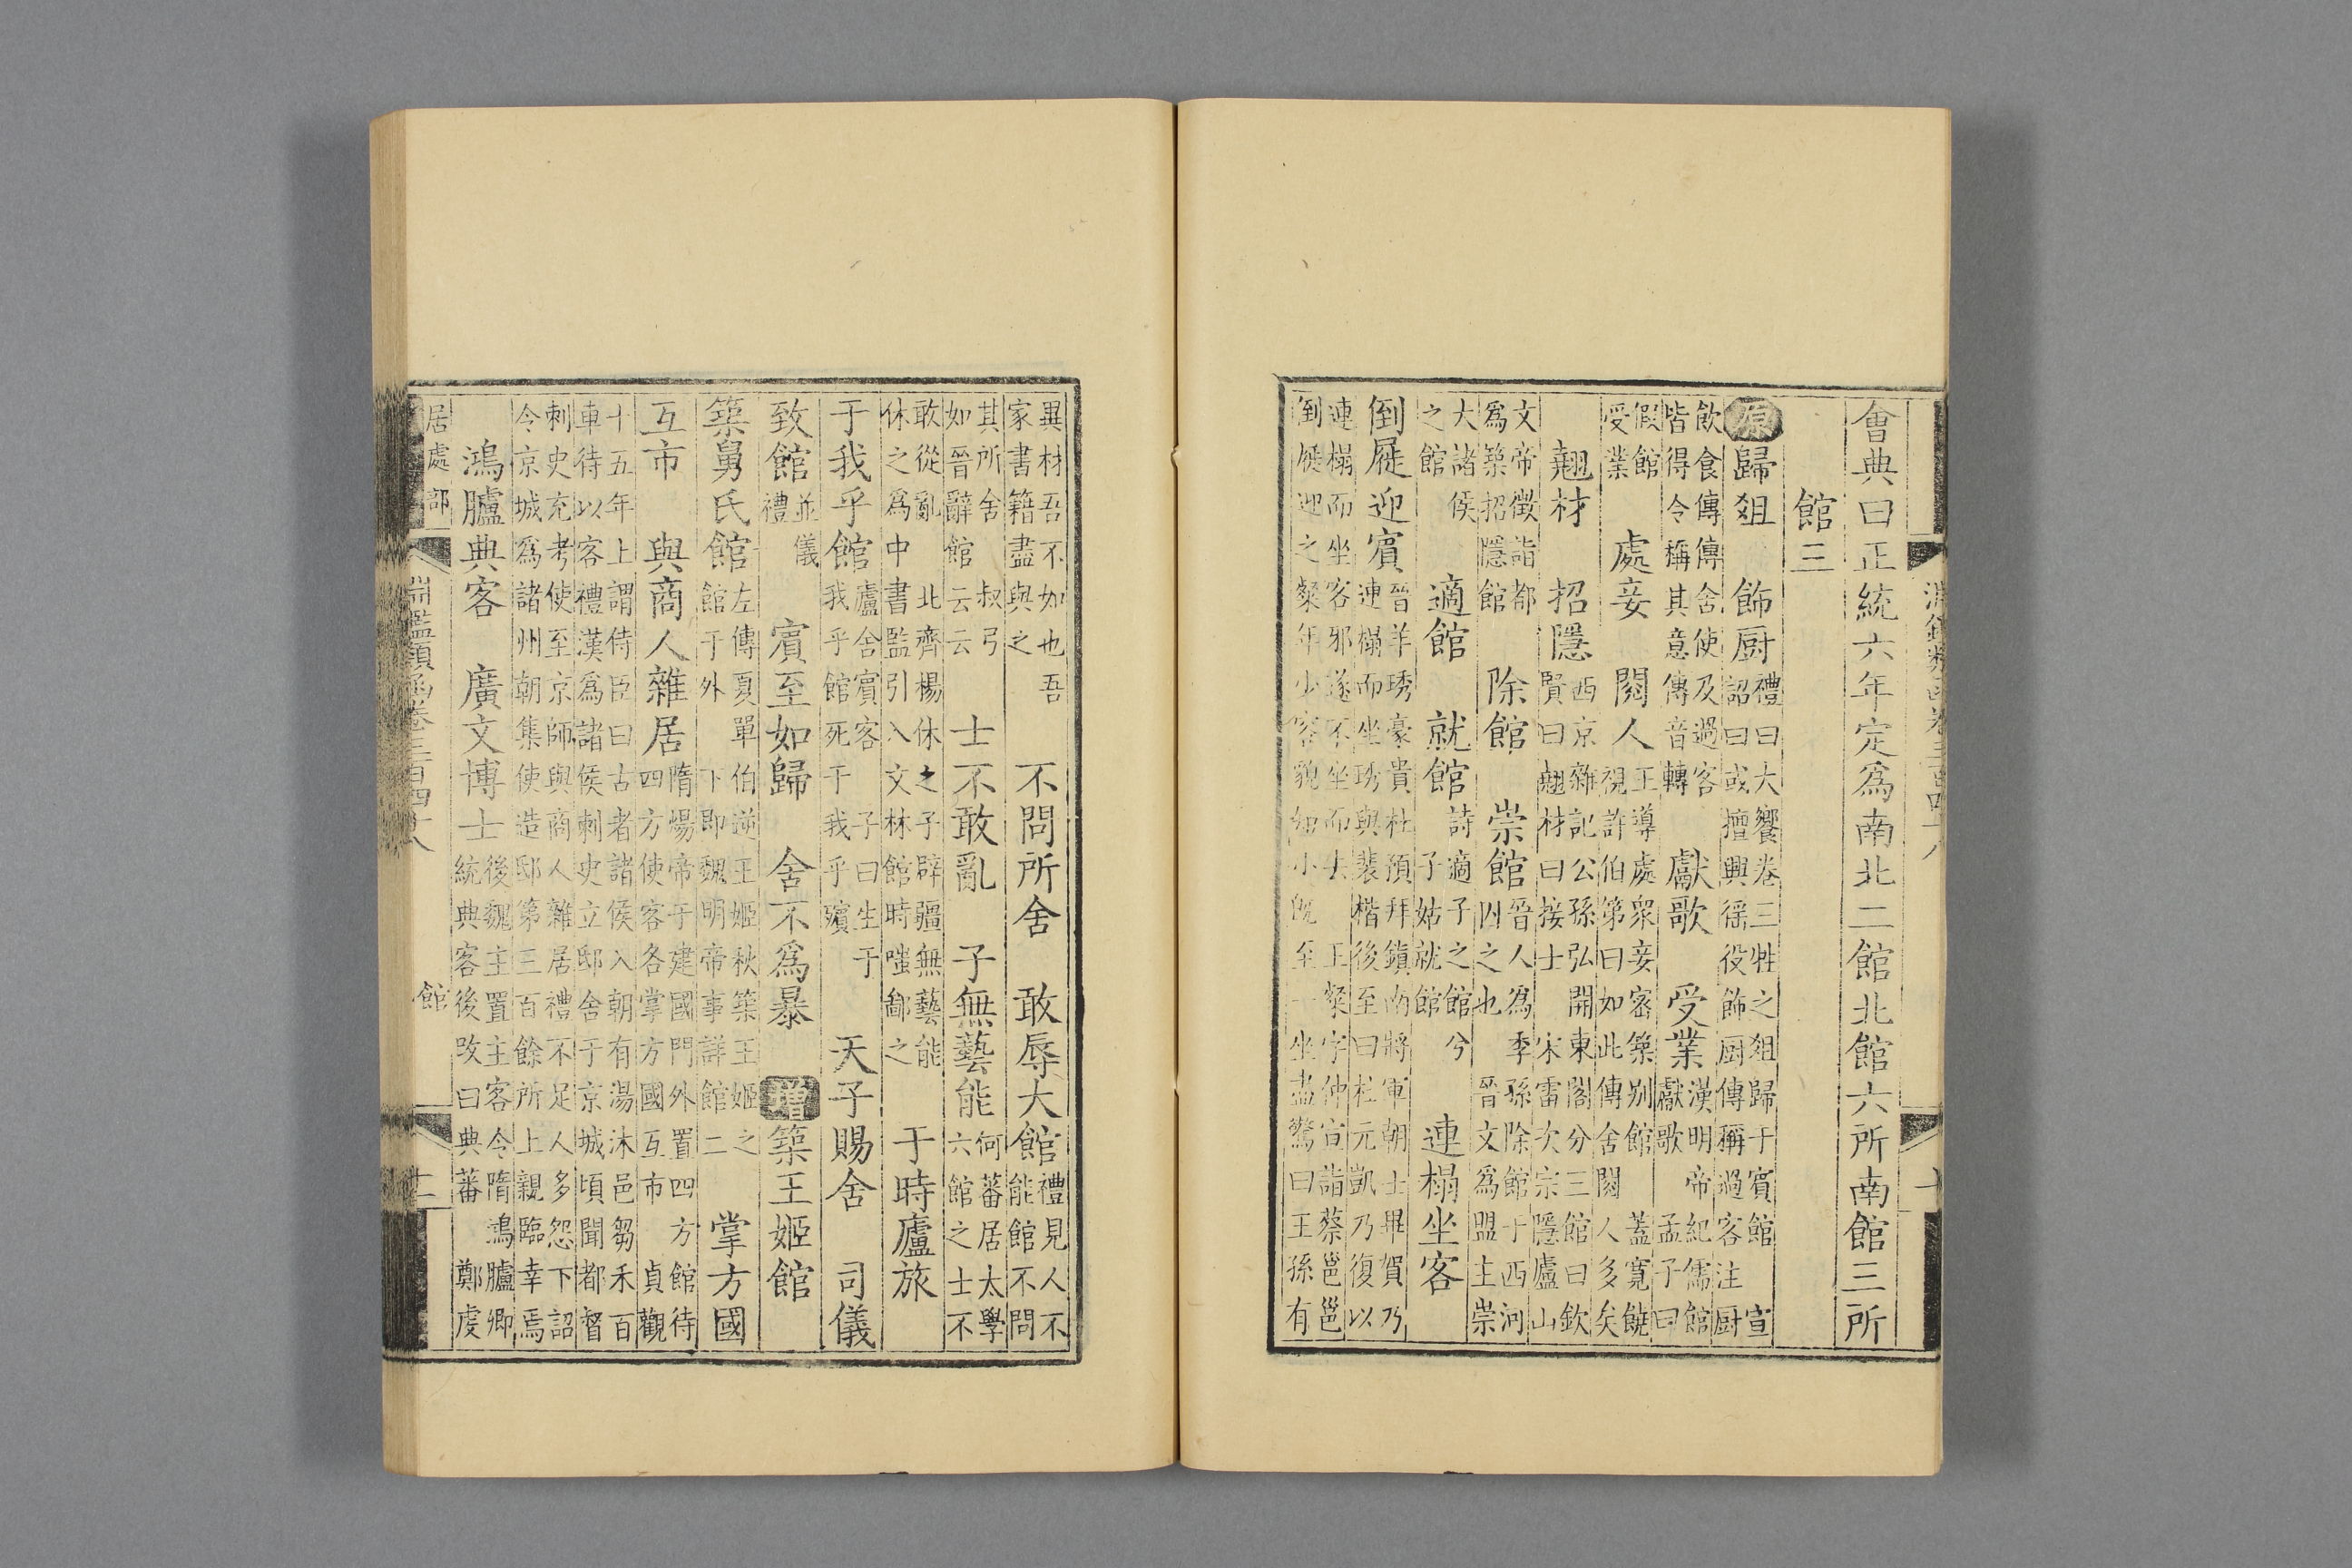 淵鑑類函卷三百四十八
會典曰正統六年定爲南北二館北館六所南館三所
館三
原歸俎 飾厨 禮曰大饗卷三牲之俎歸于賓館 宣
詔曰或擅興徭役飾厨傳稱過客注厨
飲食傳傳舍使及過客
皆得令稱其意傳音轉
獻歌 受業 漢明帝紀儒館
獻歌 孟子曰
假館
受業
處妾 閱人 王導處衆妾密築别館 蓋寬饒
視許伯第曰如此傳舍閱人多矣
翹材 招隱 西京雜記公孫弘開東閣分三館曰欽
賢曰翹材曰接士 宋雷次宗隱廬山
文帝徵詣都
爲築招隱館
除館 崇館 晉人爲季孫除館于西河
囚之也 晉文爲盟主崇
大諸侯
之館
適館 就館 詩適子之館兮
子姑就館
連榻坐客
倒屣迎賓 晉羊琇豪貴杜預拜鎮南將軍朝士畢賀乃
連榻而坐琇與裴楷後至曰杜元凱乃復以
連榻而坐客邪遂不坐而去 王粲字仲宣詣蔡邕邕
倒屣迎之粲年少容貌如小既至一坐盡驚曰王孫有
異材吾不如也吾
家書籍盡與之
不問所舍 敢辱大館 禮見人不
能館不問
其所舍 叔弓
如晉辭館云云
士不敢亂 子無藝能 何蕃居太學
六館之士不
敢從亂 北齊楊休之子辟疆無藝能
休之爲中書監引入文林館時嗤鄙之
于時廬旅
于我乎館 廬舍賓客 子曰生于
我乎館死于我乎殯
天子賜舍 司儀
致館 並儀
禮
賓至如歸 舍不爲暴 增築王姬館
築舅氏館 左傳夏單伯逆王姬秋築王姬之
館于外 下即魏明帝事詳館二
掌方國
互市 與商人雜居 隋煬帝于建國門外置四方館待
四方使客各掌方國互市 貞觀
十五年上謂侍臣曰古者諸侯入朝有湯沐邑芻禾百
車待以客禮漢爲諸侯刺史立邸舍于京城頃聞都督
刺史充考使至京師與商人雜居禮不足人多怨下詔
令京城爲諸州朝集使造邸第三百餘所上親臨幸焉
鴻臚典客 廣文博士 後魏主置主客令隋鴻臚卿
統典客後改曰典蕃 鄭虔
居處部 淵鑑類函卷三百四十八 館 十二